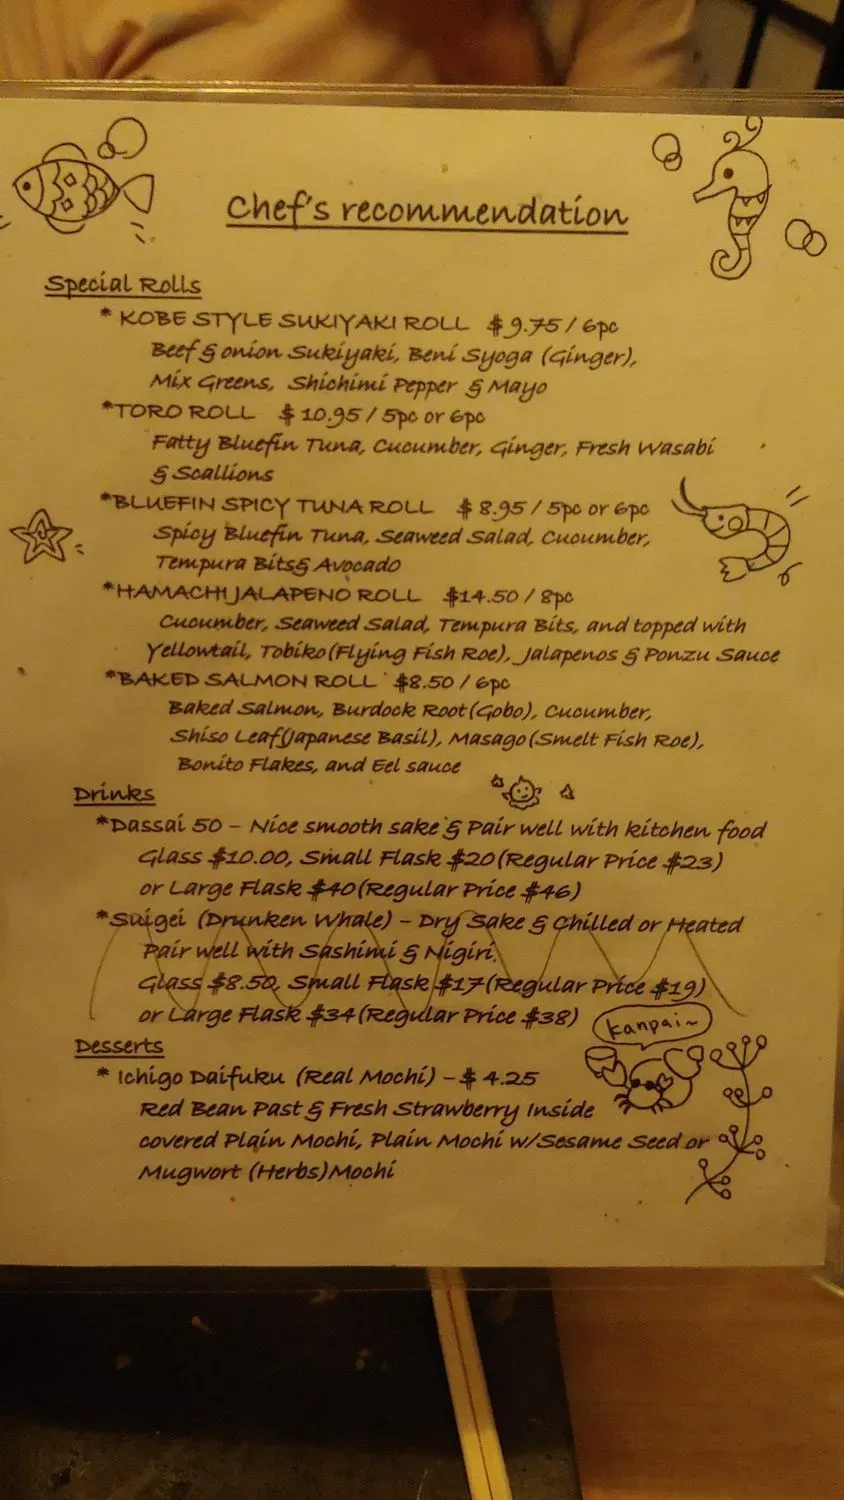 Chef's recommendation
Special Rolls
* KOBE STYLE SUKIYAKI ROLL $9.75 / 6pc
Beef & onion Sukiyaki, Beni Syoga (Ginger),
Mix Greens, Shichimi Pepper & Mayo
*TORO ROLL $10.95 / 5pc or 6pc
Fatty Bluefin Tuna, Cucumber, Ginger, Fresh Wasabi
& Scallions
*BLUEFIN SPICY TUNA ROLL $8.95 / 5pc or 6pc
Spicy Bluefin Tuna, Seaweed Salad, Cucumber,
Tempura Bits& Avocado
*HAMACHI JALAPENO ROLL $14.50 / 8pc
Cucumber, Seaweed Salad, Tempura Bits, and topped with
Yellowtail, Tobiko(Flying Fish Roe), Jalapenos & Ponzu Sauce
*BAKED SALMON ROLL $8.50 / 6pc
Baked Salmon, Burdock Root(Gobo), Cucumber,
Shiso Leaf(Japanese Basil), Masago(Smelt Fish Roe),
Bonito Flakes, and Eel sauce
Drinks
*Dassai 50 - Nice smooth sake & Pair well with kitchen food
Glass $10.00, Small Flask $20(Regular Price $23)
or Large Flask $40(Regular Price $46)
*Suigei (Drunken Whale) - Dry Sake & Chilled or Heated
Pair well with Sashimi & Nigiri.
Glass $8.50, Small Flask $17(Regular Price $19)
or Large Flask $34(Regular Price $38)
kanpai~
Desserts
* Ichigo Daifuku (Real Mochi) - $4.25
Red Bean Past & Fresh Strawberry Inside
covered Plain Mochi, Plain Mochi w/Sesame Seed or
Mugwort (Herbs)Mochi